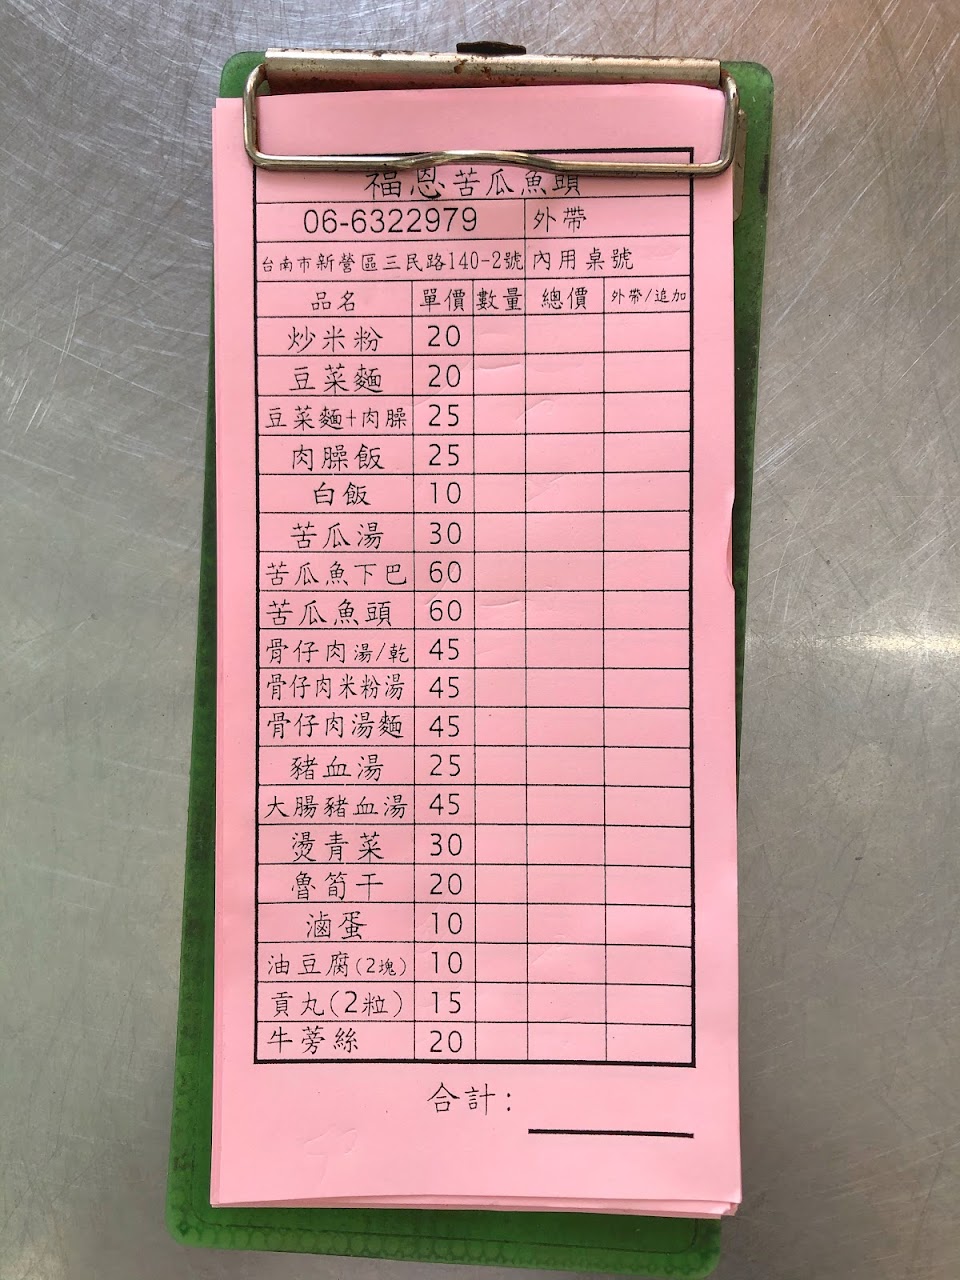 福恩苦瓜魚頭
06-6322979 外帶
台南市新營區三民路140-2號 內用桌號
品名 單價 數量 總價 外帶/追加
炒米粉 20
豆菜麵 20
豆菜麵+肉臊 25
肉臊飯 25
白飯 10
苦瓜湯 30
苦瓜魚下巴 60
苦瓜魚頭 60
骨仔肉湯/乾 45
骨仔肉米粉湯 45
骨仔肉湯麵 45
豬血湯 25
大腸豬血湯 45
燙青菜 30
魯筍干 20
滷蛋 10
油豆腐(2塊) 10
貢丸(2粒) 15
牛蒡絲 20
合計: